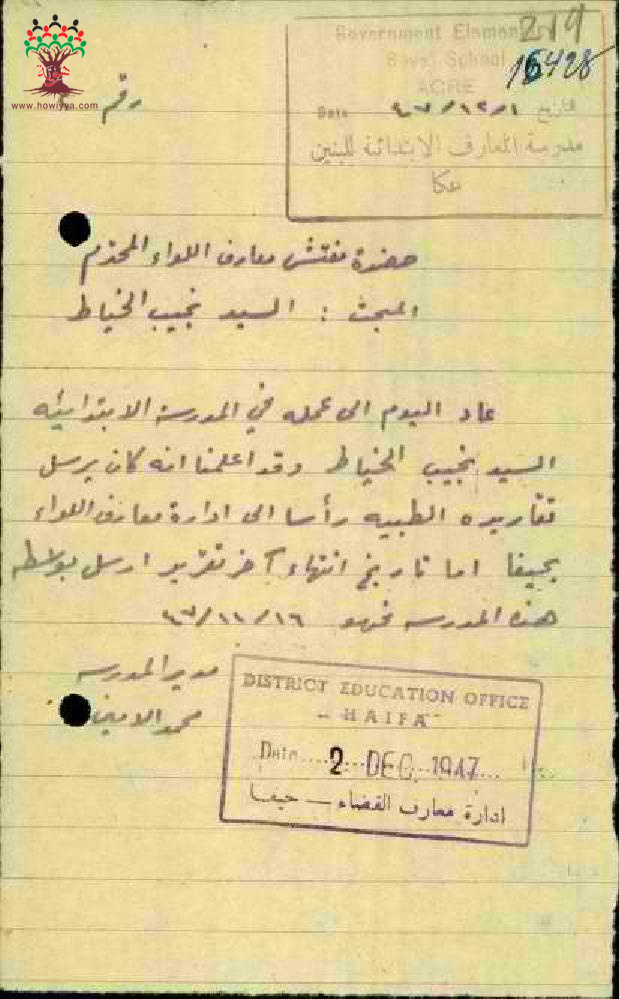 219
Government Elementary
Boys' School
16428
ACRE
www.howiyya.com
رقم
Date ٤٧/١٢/١ تاريخ
مدرسة المعارف الابتدائية للبنين
عكا
حضرة مفتش معارف اللواء المحترم
المبحث : السيد نجيب الخياط
عاد اليوم الى عمله في المدرسة الابتدائيه
السيد نجيب الخياط وقد اعلمنا انه كان يرسل
تقاريره الطبيه رأسا الى ادارة معارف اللواء
بحيفا اما تاريخ انتهاء آخر تقرير ارسل بواسطة
هذه المدرسه فهو ٤٧/١١/١٦
مدير المدرسه
محمد الامين
DISTRICT EDUCATION OFFICE
- HAIFA -
Date 2 DEC 1947
ادارة معارف القضاء — حيفا